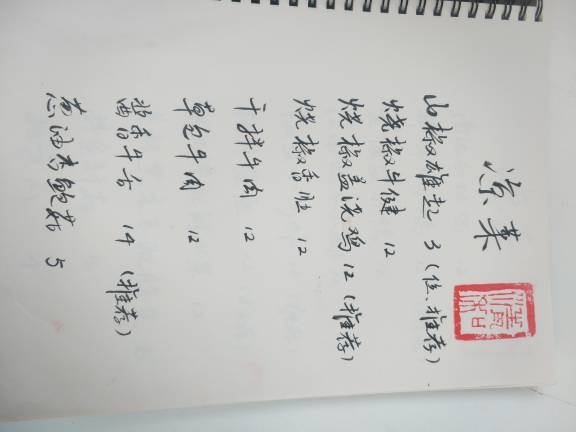 凉菜
山椒雄起 3（位、推荐）
烧椒牛健 12
烧椒盖浇鸡 12（推荐）
烧椒香肚 12
干拌牛肉 12
草包牛肉 12
酱香牛舌 14（推荐）
葱油杏鲍菇 5